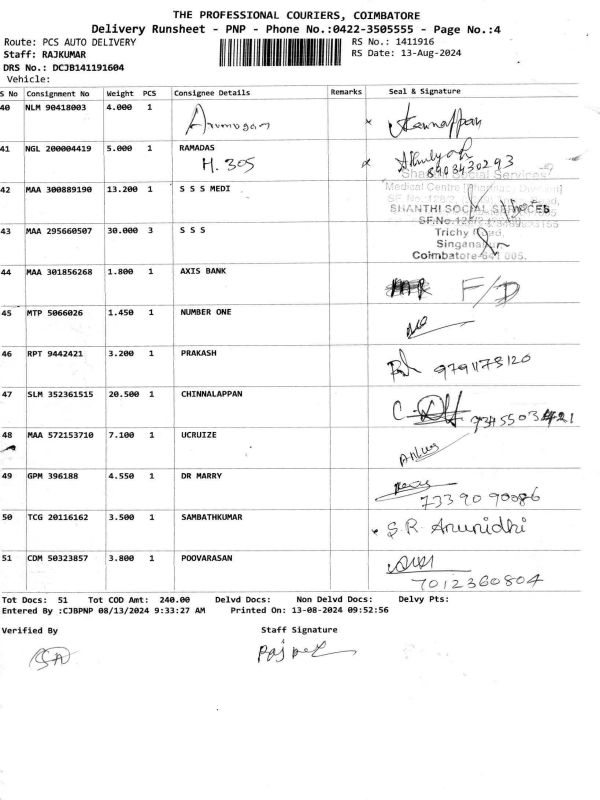 THE PROFESSIONAL COURIERS, COIMBATORE
Delivery Runsheet - PNP - Phone No.:0422-3505555 - Page No.:4
Route: PCS AUTO DELIVERY RS No.: 1411916
Staff: RAJKUMAR RS Date: 13-Aug-2024
DRS No.: DCJB141191604
Vehicle:
S No Consignment No Weight PCS Consignee Details Remarks Seal & Signature
40 NLM 90418003 4.000 1 Arumugam
41 NGL 200004419 5.000 1 RAMADAS
H. 305 8903430293
Shanthi Social Services
42 MAA 300889190 13.200 1 S S S MEDI Medical Centre
SHANTHI SOCIAL SERVICES
43 MAA 295660507 30.000 3 S S S Trichy Road,
Coimbatore-641 005.
44 MAA 301856268 1.800 1 AXIS BANK F/D
45 MTP 5066026 1.450 1 NUMBER ONE
46 RPT 9442421 3.200 1 PRAKASH
47 SLM 352361515 20.500 1 CHINNALAPPAN
48 MAA 572153710 7.100 1 UCRUIZE
49 GPM 396188 4.550 1 DR MARRY
7339090086
50 TCG 20116162 3.500 1 SAMBATHKUMAR S.R. Arunidhi
51 CDM 50323857 3.800 1 POOVARASAN
7012360804
Tot Docs: 51 Tot COD Amt: 240.00 Delvd Docs: Non Delvd Docs: Delvy Pts:
Entered By :CJBPNP 08/13/2024 9:33:27 AM Printed On: 13-08-2024 09:52:56
Verified By Staff Signature